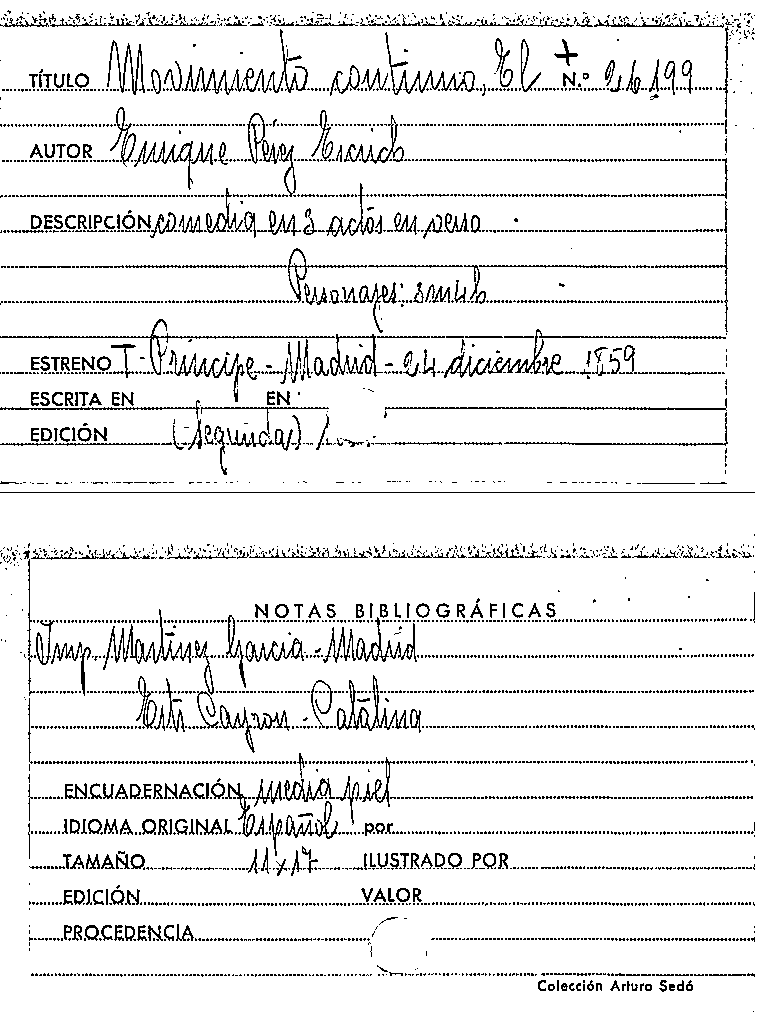 TÍTULO Movimiento continuo, El + N.º 26199
AUTOR Enrique Pérez Escrich
DESCRIPCIÓN comedia en 3 actos en verso
Personajes: 3m4h
ESTRENO T. Príncipe - Madrid - 24 diciembre 1859
ESCRITA EN EN
EDICIÓN (Segunda)
NOTAS BIBLIOGRÁFICAS
Imp. Martinez Garcia - Madrid
Catalina
ENCUADERNACIÓN media piel
IDIOMA ORIGINAL Español por
TAMAÑO 11x17 ILUSTRADO POR
EDICIÓN VALOR
PROCEDENCIA
Colección Arturo Sedó